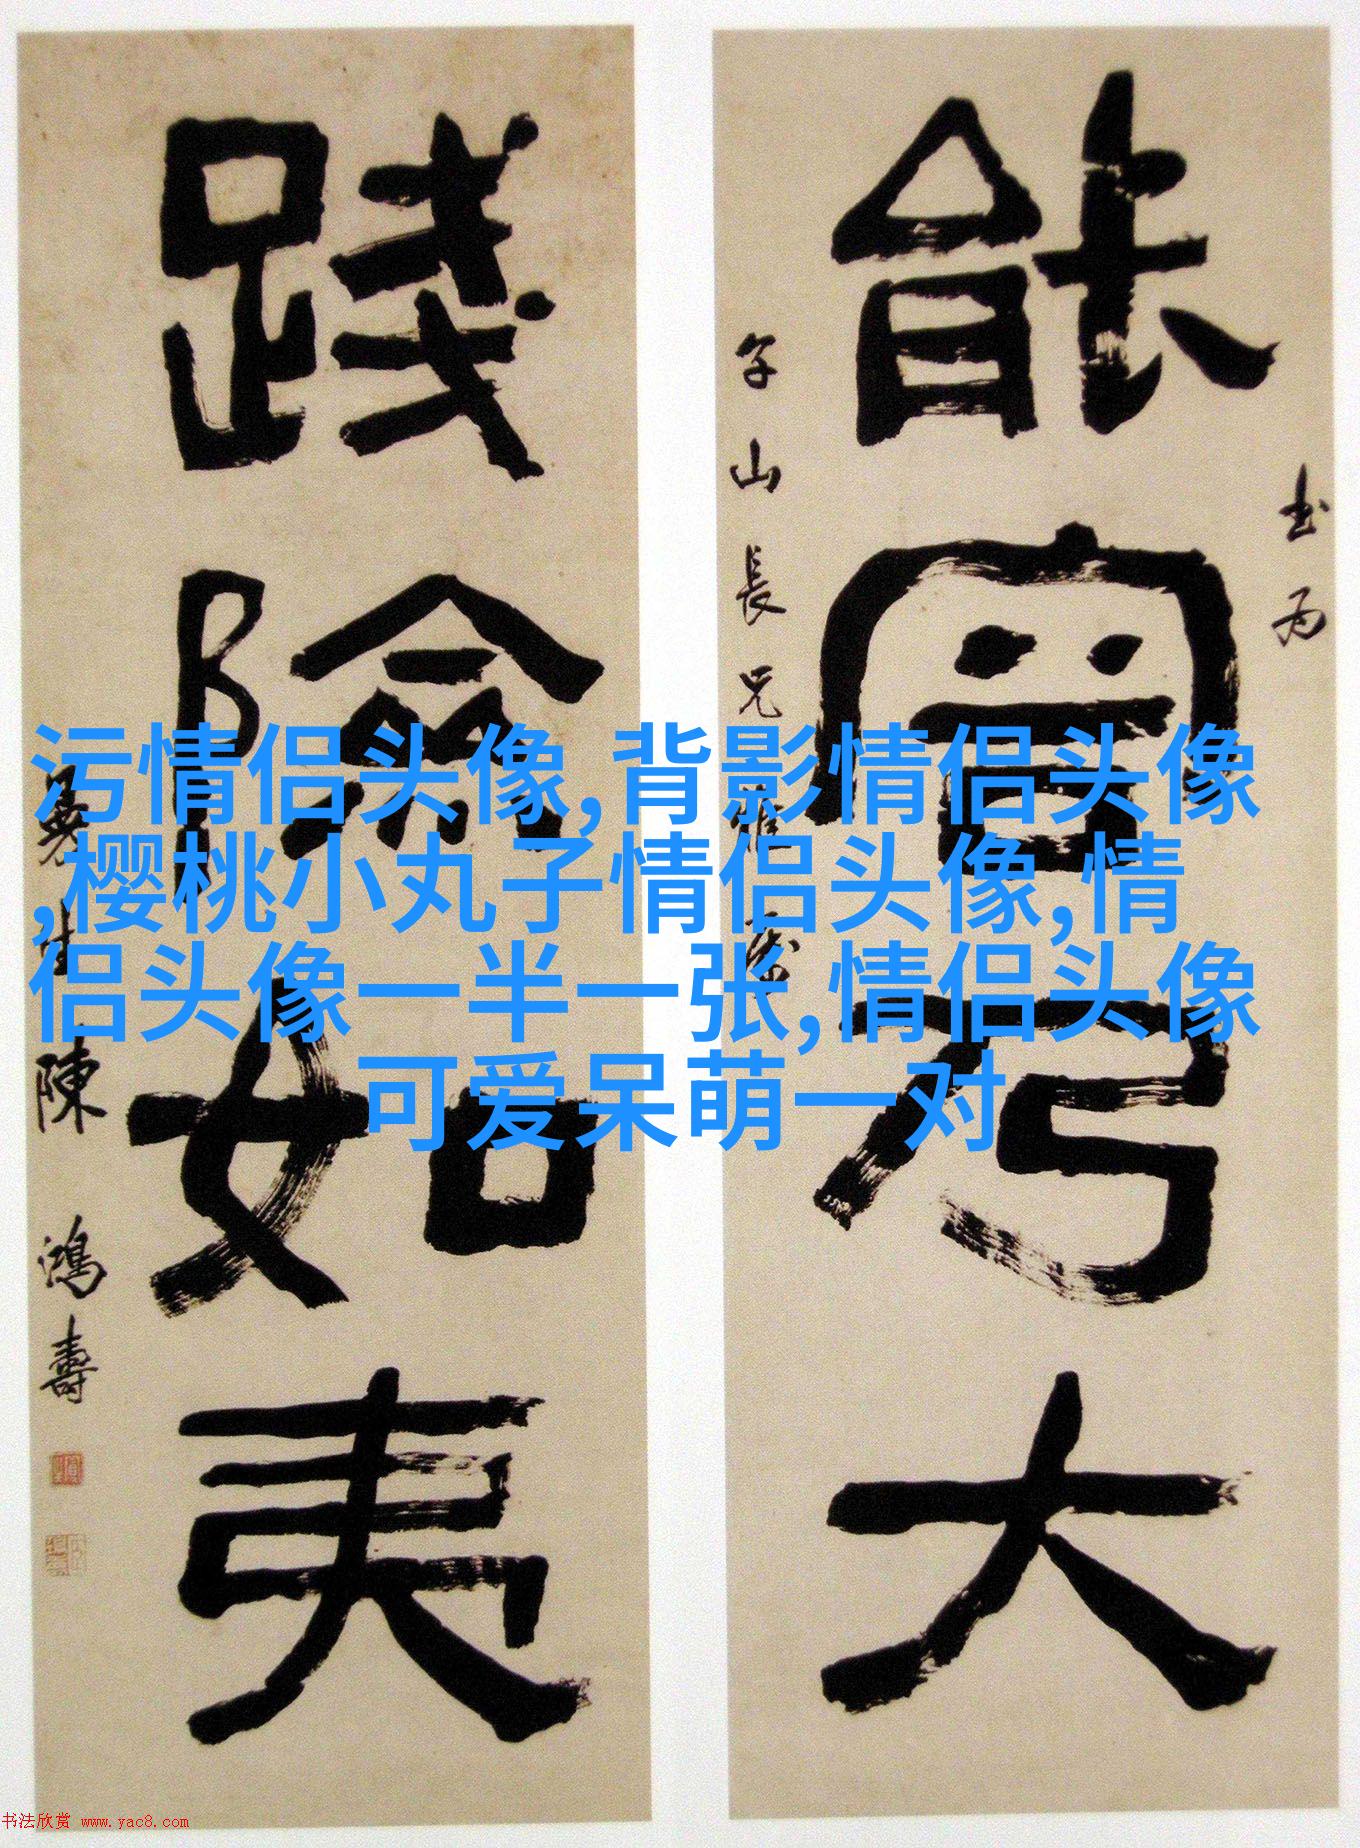 能容乃大
書為
山長兄雅
踐險如夷
曼生陳鴻壽
污情侣头像,背影情侣头像
,樱桃小丸子情侣头像,情
侣头像一半一张,情侣头像
可爱呆萌一对
书法欣赏 www.yac8.com